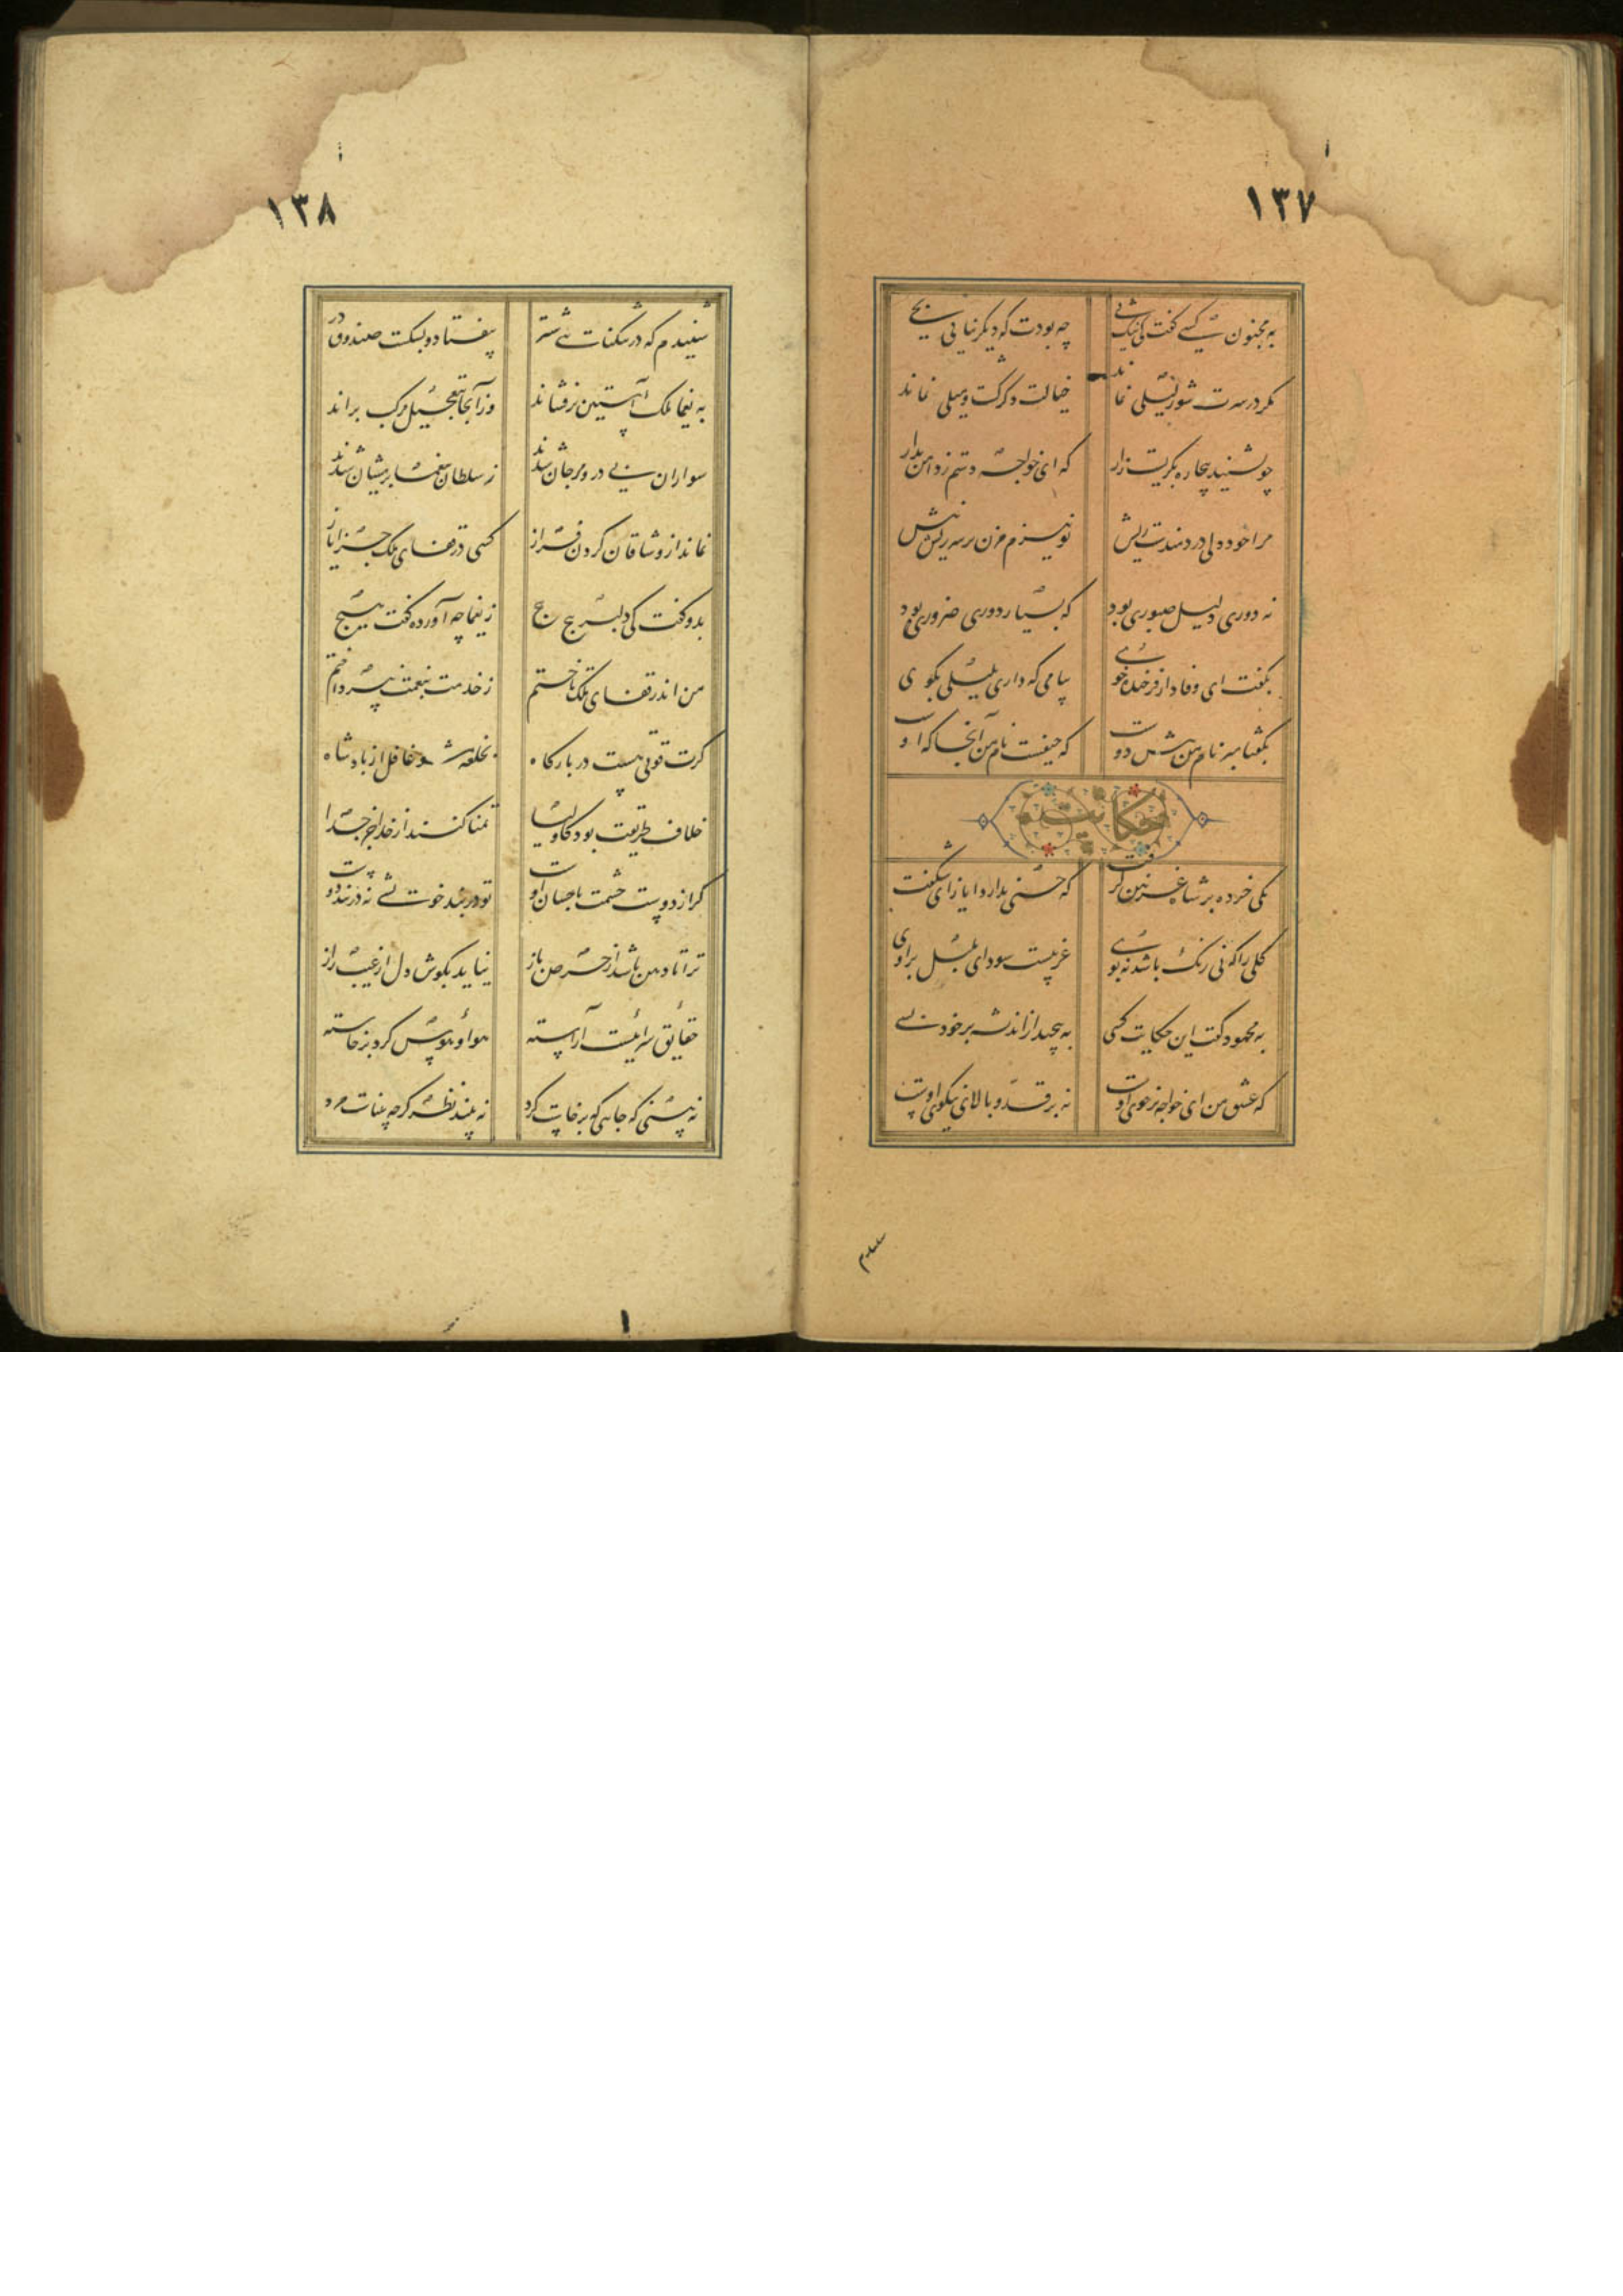 ۱۳۷
به مجنون کسی گفت کای نیک پی چه بودت که دیگر نیایی بحی
مگر در سرت شور لیلی نماند خیالت دگر گشت و میلی نماند
چو بشنید بیچاره بگریست زار که ای خواجه دستم ز دامن بدار
مرا خود دلی دردمندست ریش تو نیزم مزن بر سر ریش نیش
نه دوری دلیل صبوری بود که بسیار دوری ضروری بود
بگفت ای وفادار فرخنده خوی پیامی که داری بلیلی بگوی
بگفتا مبر نام من پیش دوست که حیفست نام من آنجا که اوست
حکایت
یکی خرده بر شاه غزنین گرفت که حسنی ندارد ایاز ای شگفت
گلی را که نی رنگ باشد نه بوی غریبست سودای بلبل بر اوی
به محمود گفت این حکایت کسی به پیچید از اندیشه بر خود بسی
که عشق من ای خواجه بر خوی اوست نه بر قد و بالای نیکوی اوست
۱۳۸
شنیدم که در تنگنایی شتر بیفتاد و بشکست صندوق در
به یغما ملک آستین برفشاند وز آنجا بتعجیل مرکب براند
سواران پی در و مرجان شدند ز سلطان به یغما پریشان شدند
نماند از وشاقان گردن فراز کسی در قفای ملک جز ایاز
بدو گفت کای دلبر پیچ پیچ ز یغما چه آورده گفت هیچ
من اندر قفای ملک تاختم ز خدمت بنعمت نپرداختم
گرت قوتی هست در بارگاه بخلعت مشو غافل از پادشاه
خلاف طریقت بود کاولیا تمنا کنند از خدا جز خدا
گر از دوست چشمت باحسان اوست تو در بند خویشی نه در بند دوست
ترا تا دهن باشد از حرص باز نیاید بگوش دل از غیب راز
حقایق سرائیست آراسته هوا و هوس گرد برخاسته
نه بینی که جایی که برخاست گرد نه بیند نظر گرچه بیناست مرد